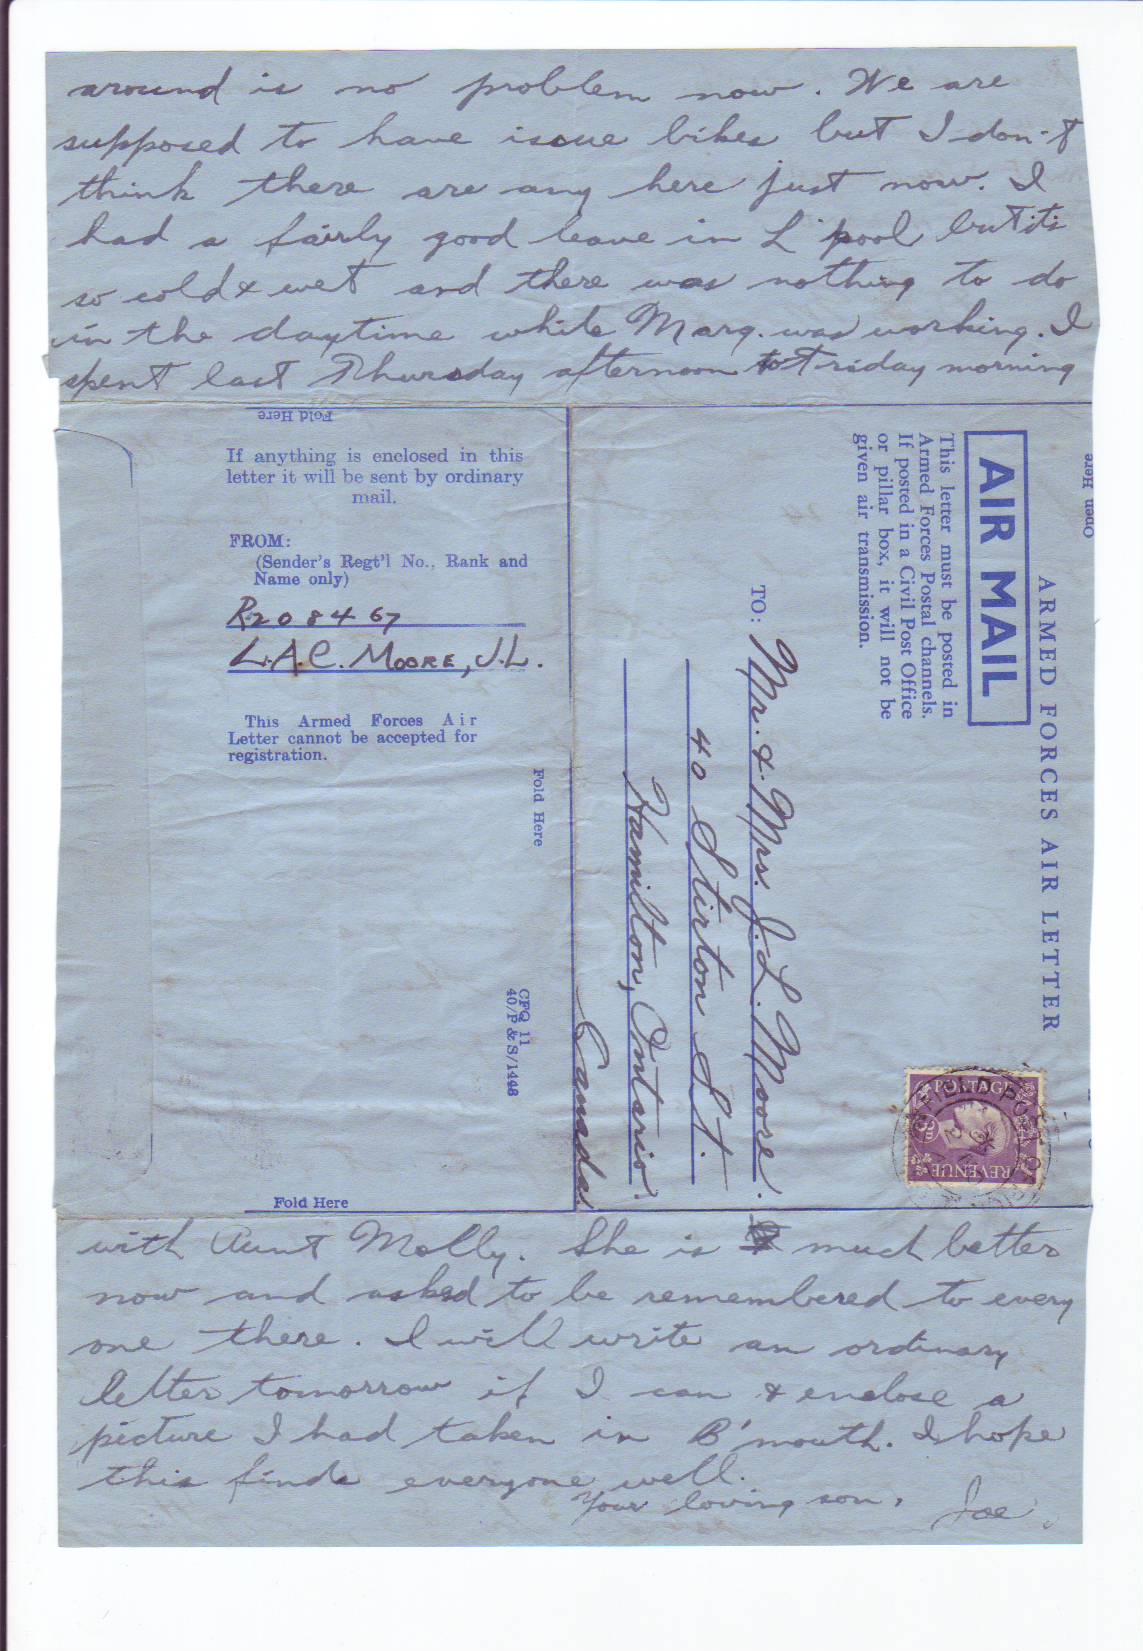 around is no problem now. We are
supposed to have issue bikes but I don't
think there are any here just now. I
had a fairly good leave in L'pool but its
so cold & wet and there was nothing to do
in the daytime while Marg. was working. I
spent last Thursday afternoon to Friday morning
Fold Here
If anything is enclosed in this
letter it will be sent by ordinary
mail.
FROM:
(Sender's Regt'l No., Rank and
Name only)
R208467
L.A.C. MOORE, J.L.
This Armed Forces Air
Letter cannot be accepted for
registration.
Fold Here
CFQ 11
40/P & S/1448
Fold Here
Open Here
ARMED FORCES AIR LETTER
AIR MAIL
This letter must be posted in
Armed Forces Postal channels.
If posted in a Civil Post Office
or pillar box, it will not be
given air transmission.
TO: Mr. & Mrs. J. L. Moore.
40 Stirton St.
Hamilton, Ontario.
Canada.
POSTAGE
3D
REVENUE
FIELD POST
with Aunt Molly. She is much better
now and asked to be remembered to every
one there. I will write an ordinary
letter tomorrow if I can & enclose a
picture I had taken in B'mouth. I hope
this finds everyone well.
Your loving son,
Joe.